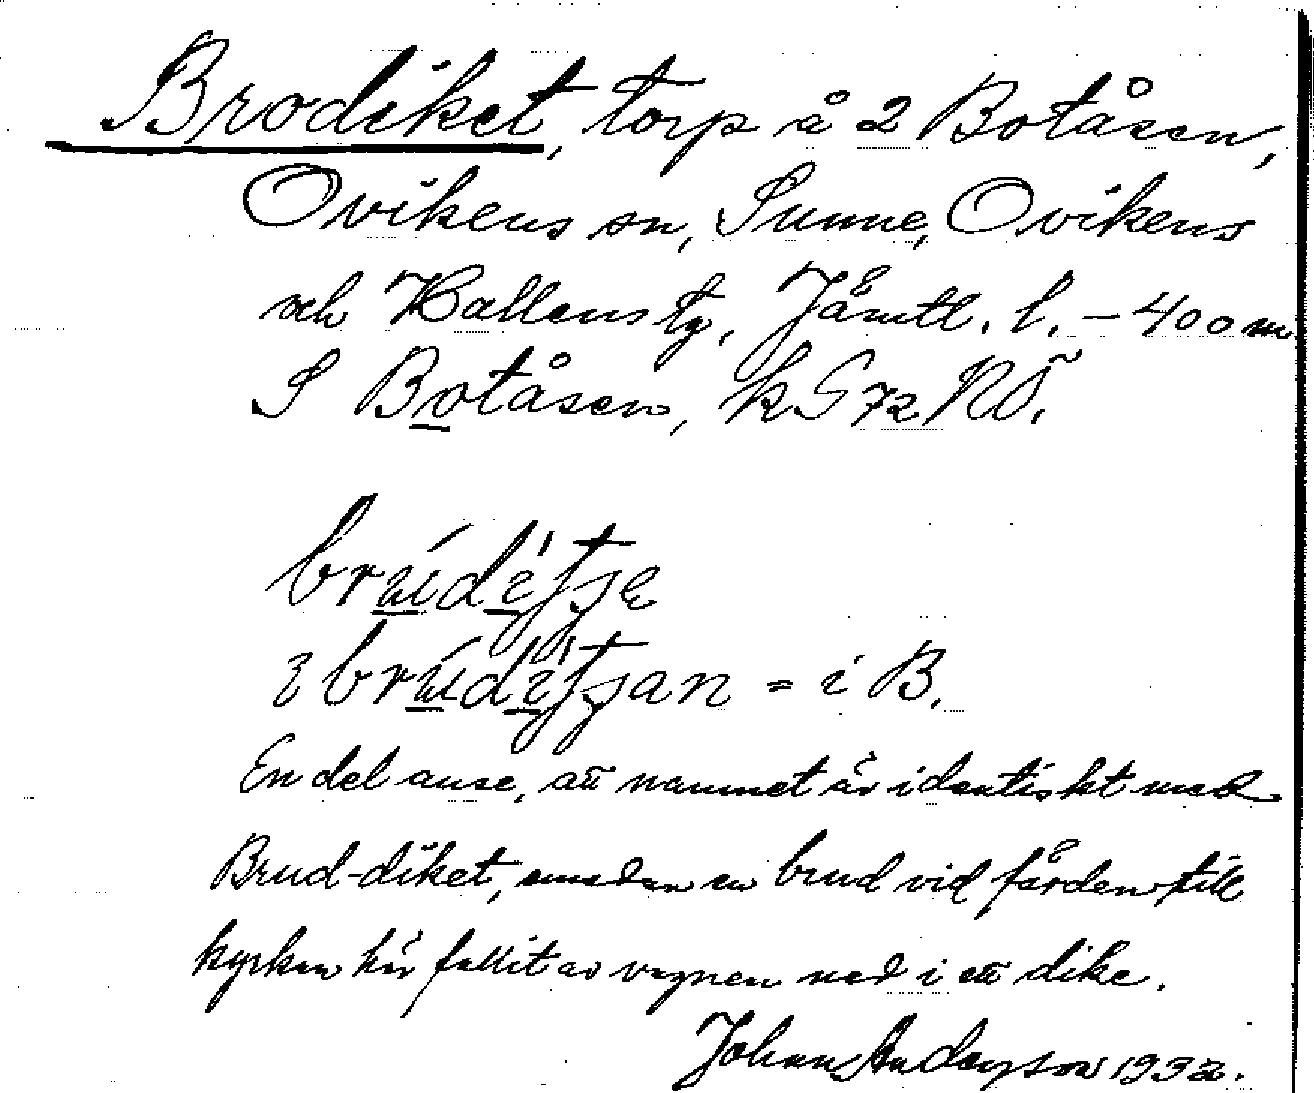 Brodiket, torp å 2 Botåsen,
Ovikens sn, Sunne, Ovikens
och Hallens tg, Jämtl. l. – 400 m
S Botåsen, k G 72 NÖ.
brúdítje
i brúdítjan = i B.
En del anse, att namnet är identiskt med
Brud-diket, emedan en brud vid färden till
kyrkan här fallit av vagnen ned i ett dike.
Johan Anderson 1932.